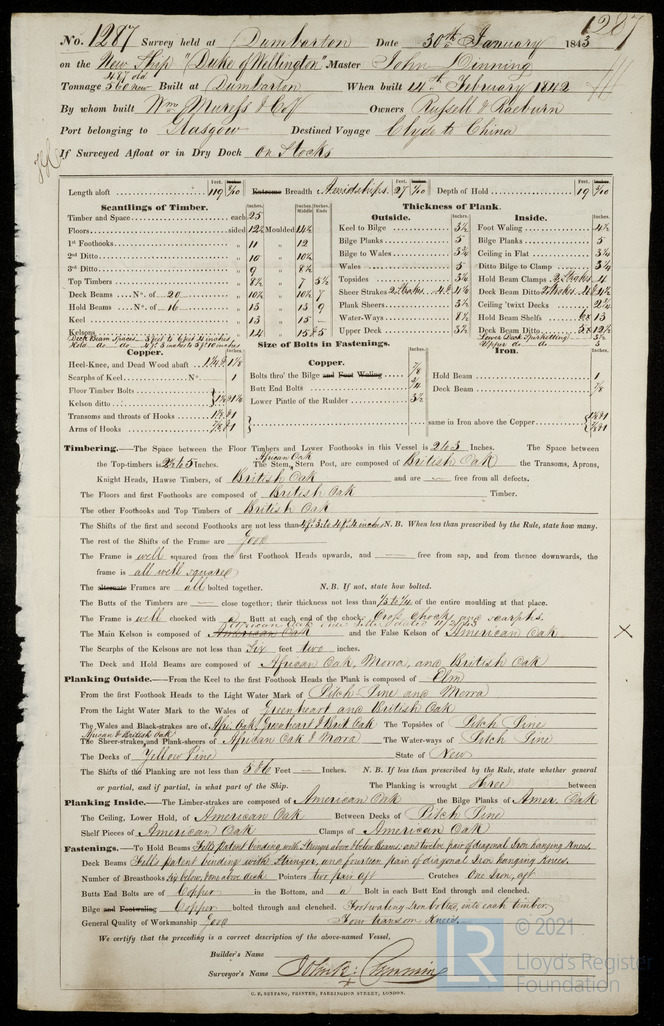 No. 1287 Survey held at Dumbarton Date 30th January 1843 1287
on the New Ship "Duke of Wellington" Master John Dinning
487 old
Tonnage 560 new Built at Dumbarton When built 14th February 1842
By whom built Wm Owners Russell & Raeburn
Port belonging to Glasgow Destined Voyage Clyde to China
If Surveyed Afloat or in Dry Dock on Stocks
Length aloft 119 Extreme Breadth Amidships 27 Depth of Hold 19
Scantlings of Timber. Thickness of Plank.
Outside. Inside.
Timber and Space each 25 Keel to Bilge 3½ Foot Waling
Floors sided 12½ Moulded 14½ Bilge Planks 5 Bilge Planks 5
1st Foothooks 11 12 Bilge to Wales Ceiling in Flat
2nd Ditto 10 10½ Wales 5 Ditto Bilge to Clamp
3rd Ditto 9 8½ Topsides Hold Beam Clamps 2 Strakes 4
Top Timbers 7 5½ Sheer Strakes 2 Strakes Deck Beam Ditto 2 Strakes
Deck Beams No. of 20 10½ 10½ 7 Plank Sheers 3½ Ceiling 'twixt Decks
Hold Beams No. of 16 13 13 9 Water-Ways Hold Beam Shelfs 13
Keel 13 15 Upper Deck 3½ Deck Beam Ditto
Kelsons 14 15
Size of Bolts in Fastenings.
Copper. Copper. Iron.
Heel-Knee, and Dead Wood abaft Bolts thro' the Bilge and Foot Waling 7/8 Hold Beam 1
Scarphs of Keel No. 1 Butt End Bolts Deck Beam 7/8
Floor Timber Bolts Lower Pintle of the Rudder
Kelson ditto
Transoms and throats of Hooks same in Iron above the Copper
Arms of Hooks
Timbering.—The Space between the Floor Timbers and Lower Foothooks in this Vessel is 2 to 3 Inches. The Space between
the Top-timbers is 2½ to 5 Inches. The Stem, African Oak Stern Post, are composed of British Oak the Transoms, Aprons,
Knight Heads, Hawse Timbers, of British Oak and are — free from all defects.
The Floors and first Foothooks are composed of British Oak Timber.
The other Foothooks and Top Timbers of British Oak
The Shifts of the first and second Foothooks are not less than 4ft 3 to 4ft 4 inches N. B. When less than prescribed by the Rule, state how many.
The rest of the Shifts of the Frame are Good
The Frame is well squared from the first Foothook Heads upwards, and — free from sap, and from thence downwards, the
frame is all well squared
The alternate Frames are all bolted together. N. B. If not, state how bolted.
The Butts of the Timbers are — close together; their thickness not less than of the entire moulding at that place.
The Frame is well chocked with a Butt at each end of the chock. Cross chocks and scarphs.
The Main Kelson is composed of American Oak and the False Kelson of American Oak
The Scarphs of the Kelsons are not less than Six feet two inches.
The Deck and Hold Beams are composed of African Oak, Morra, and British Oak
Planking Outside.—From the Keel to the first Foothook Heads the Plank is composed of Elm
From the first Foothook Heads to the Light Water Mark of Pitch Pine and Morra
From the Light Water Mark to the Wales of Greenheart and British Oak
The Wales and Black-strakes are of Afri. Oak, Greenheart & Brit Oak The Topsides of Pitch Pine
African & British Oak
The Sheer-strakes, and Plank-sheers of African Oak & Morra The Water-ways of Pitch Pine
The Decks of Yellow Pine State of New
The Shifts of the Planking are not less than 5 to 6 Feet — Inches. N. B. If less than prescribed by the Rule, state whether general
or partial, and if partial, in what part of the Ship. The Planking is wrought three between
Planking Inside.—The Limber-strakes are composed of American Oak the Bilge Planks of Amer. Oak
The Ceiling, Lower Hold, of American Oak Between Decks of Pitch Pine
Shelf Pieces of American Oak Clamps of American Oak
Fastenings.—To Hold Beams Fell's patent binding with Stringer above & below Beams; and twelve pair of diagonal Iron hanging Knees.
Deck Beams Fell's patent binding with Stringer, and fourteen pair of diagonal Iron hanging Knees.
Number of Breasthooks Six below, & one above deck Pointers two pair aft Crutches One Iron, aft
Butts End Bolts are of Copper in the Bottom, and a Bolt in each Butt End through and clenched.
Bilge and Footwaling Copper bolted through and clenched. Footwaling Iron bolts, into each timber.
General Quality of Workmanship Good Four transom Knees.
We certify that the preceding is a correct description of the above-named Vessel,
Builder's Name
Surveyor's Name
C. F. SEYFANG, PRINTER, FARRINGDON STREET, LONDON.
LR
© 2021
Lloyd's Register
Foundation